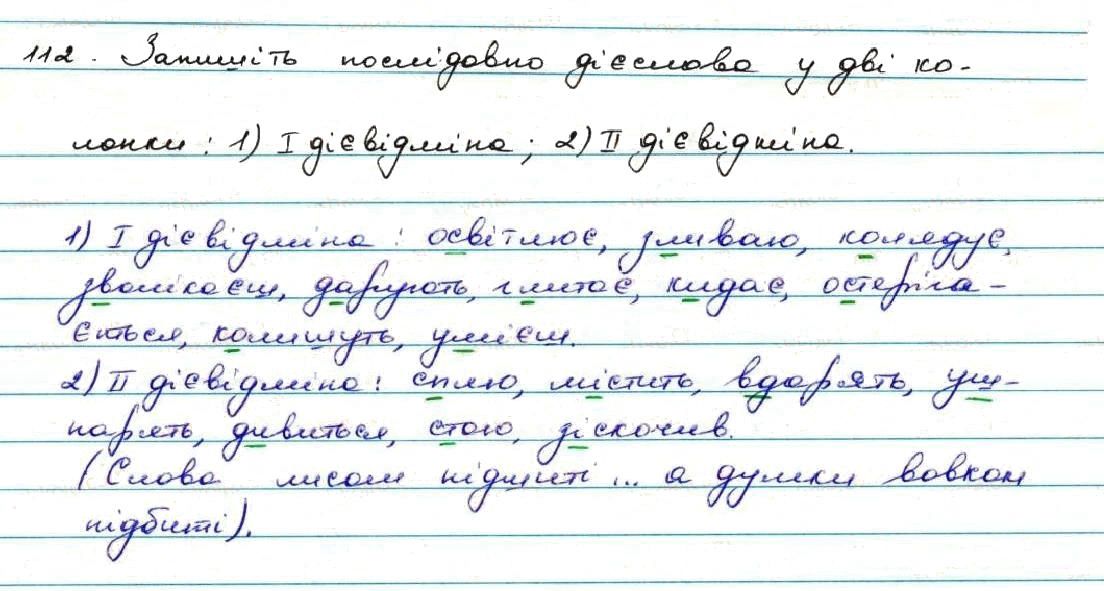 112. Запишіть послідовно дієслова у дві ко-
лонки: 1) I дієвідміна; 2) II дієвідміна.
1) I дієвідміна: освітлює, зливаю, колядує,
зволікаєш, дарують, глитає, кидає, остеріга-
ється, колишуть, умієш.
2) II дієвідміна: сплю, містить, вдарять, уш-
парять, дивиться, стою, зіскочив.
(Слова лисом підшиті ... а думки вовком
підбиті).